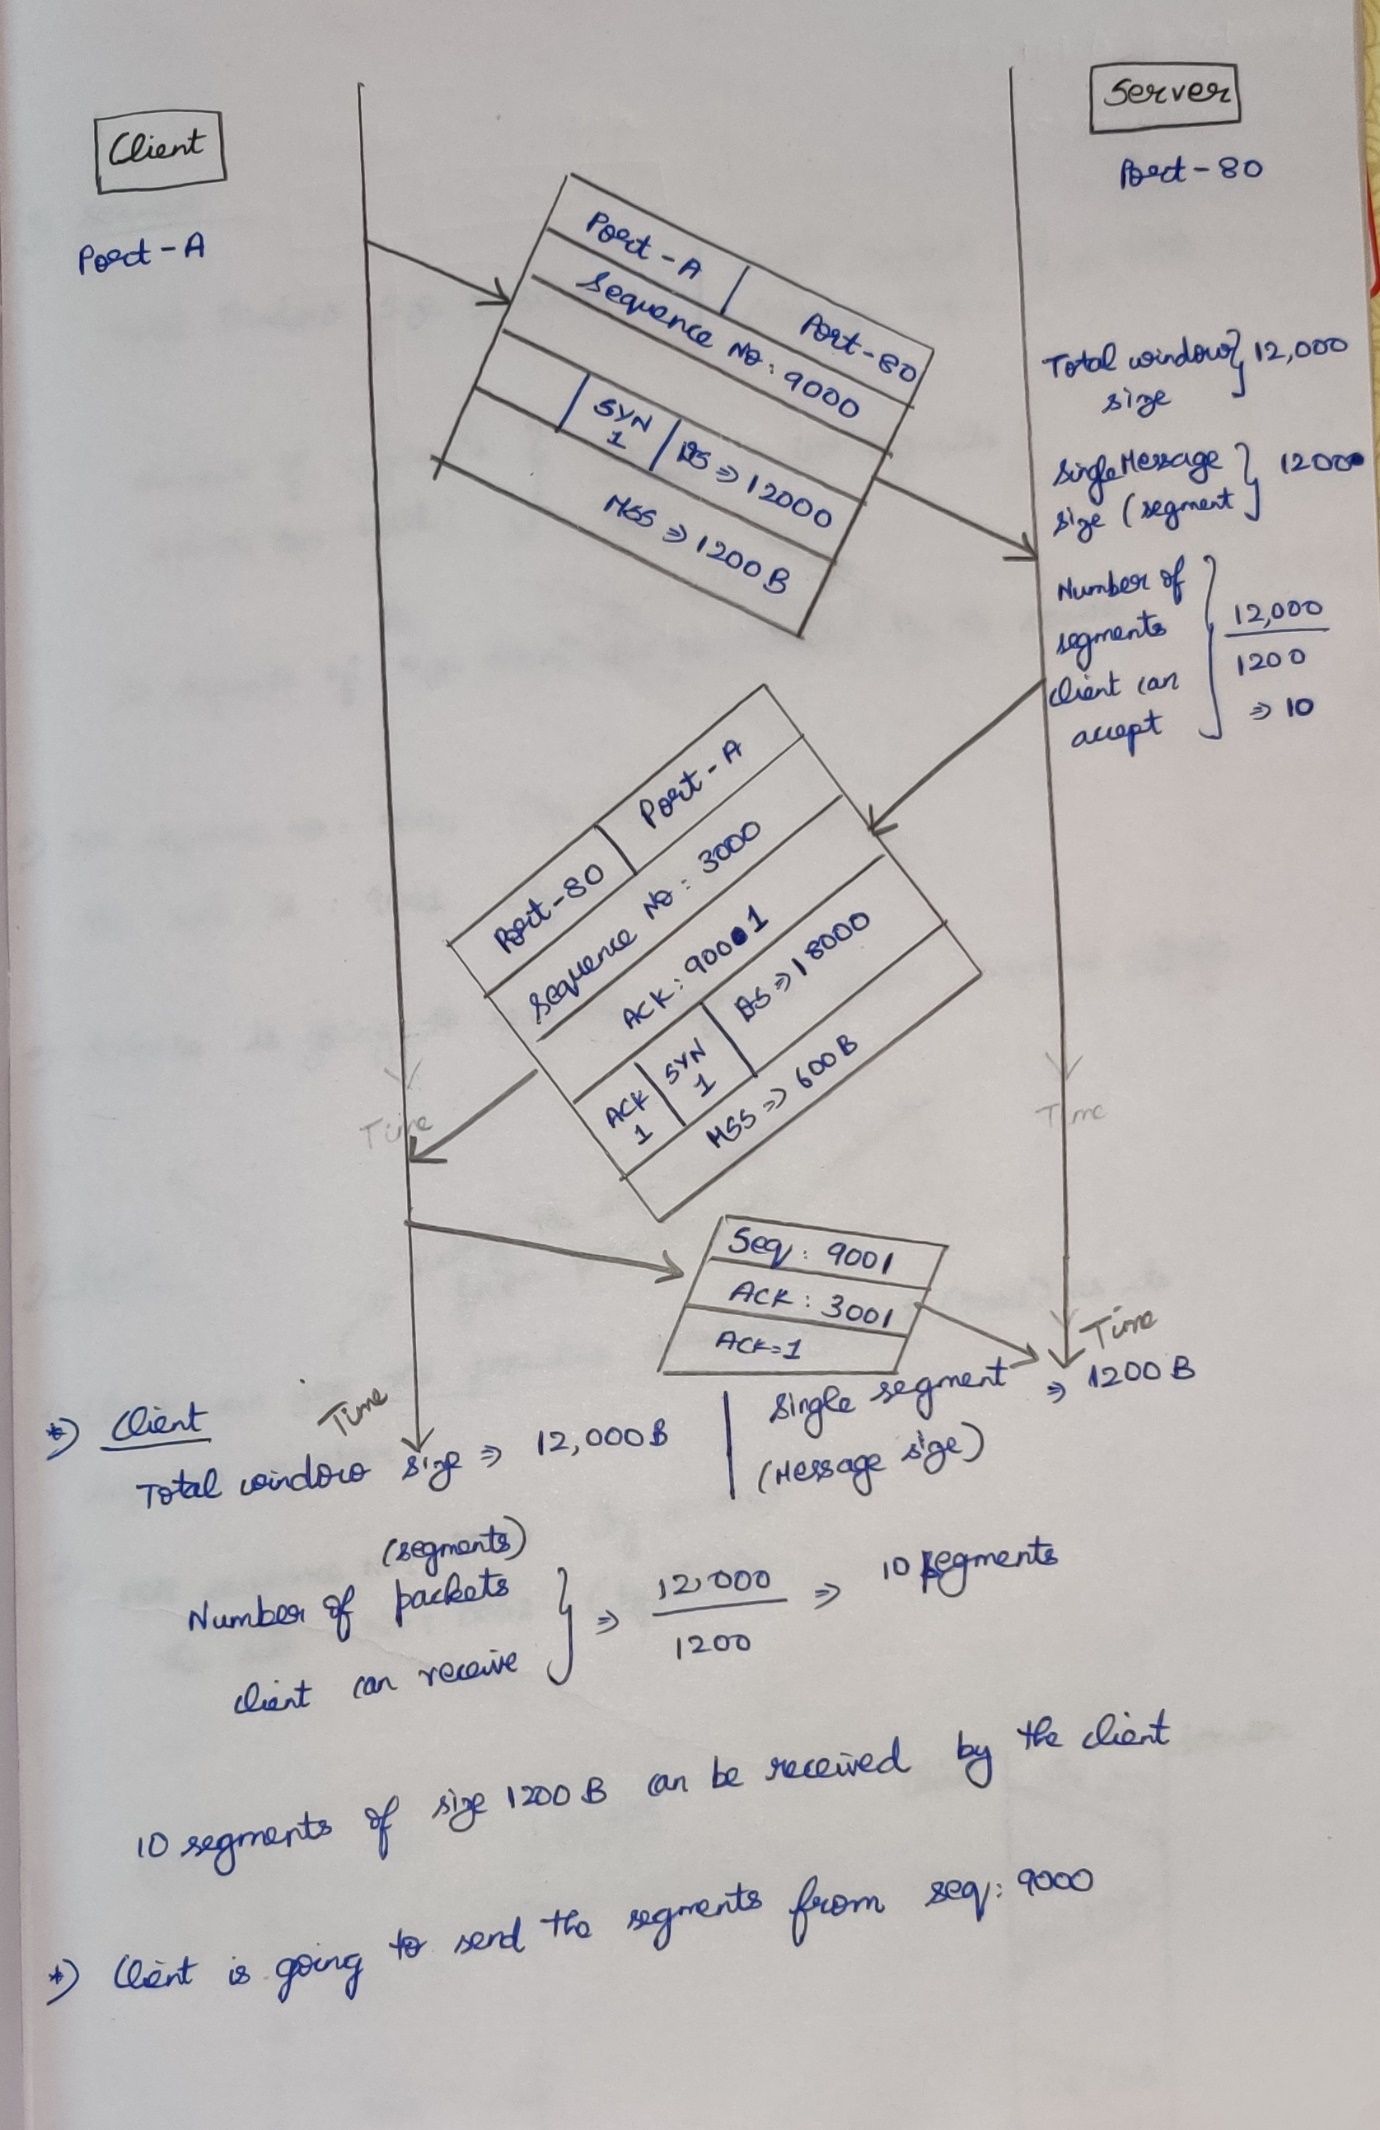 Client
Server
Port-A
Port-80
Port-A | Port-80
Sequence No: 9000
SYN 1 | WS ⇒ 12000
MSS ⇒ 1200 B
Total window size } 12,000
Single Message size (segment } 1200
Number of segments client can accept } 12,000 / 1200 ⇒ 10
Port-80 | Port-A
Sequence No: 3000
ACK: 9001
ACK 1 | SYN 1 | WS ⇒ 18000
MSS ⇒ 600 B
Time
Time
Seq: 9001
ACK: 3001
ACK=1
Time
Time
*) Client
Total window size ⇒ 12,000 B | Single segment ⇒ 1200 B
(Message size)
(segments)
Number of packets
client can receive } ⇒ 12,000 / 1200 ⇒ 10 segments
10 segments of size 1200 B can be received by the client
*) Client is going to send the segments from seq: 9000